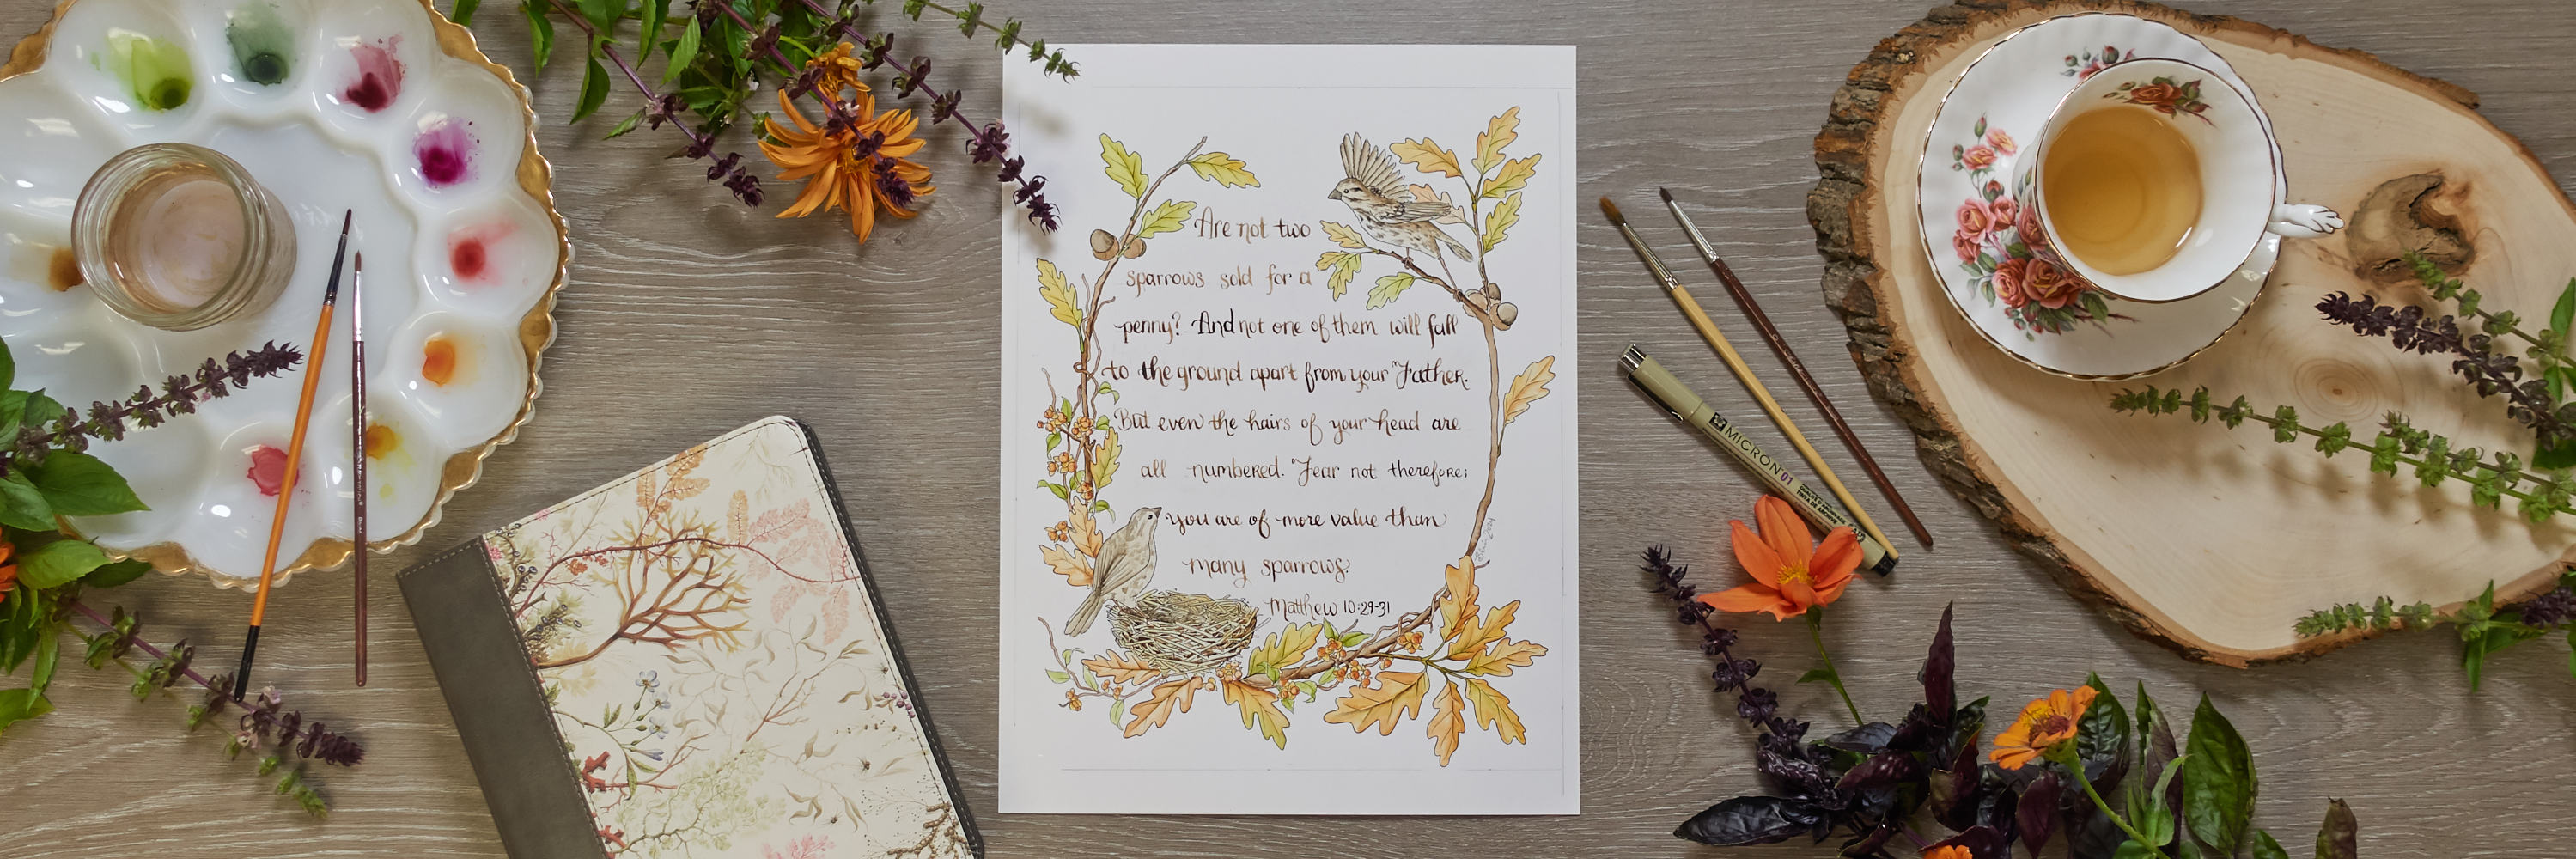 Are not two
sparrows sold for a
penny? And not one of them will fall
to the ground apart from your Father.
But even the hairs of your head are
all numbered. Fear not therefore;
you are of more value than
many sparrows.
Matthew 10:29-31
MICRON 01